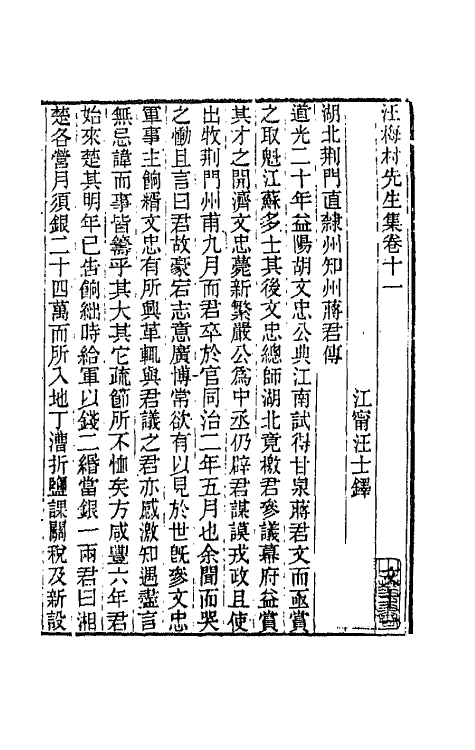 汪梅村先生集卷十一
江甯汪士鐸
湖北荆門直隸州知州蔣君傳
道光二十年益陽胡文忠公典江南試得甘泉蔣君文而亟賞
之取魁江蘇多士其後文忠總師湖北竟檄君參議幕府益賞
其才之開濟文忠薨新繁嚴公爲中丞仍辟君謀謨戎政且使
出牧荆門州甫九月而君卒於官同治二年五月也余聞而哭
之慟且言曰君故豪宕志意廣博常欲有以見於世旣參文忠
軍事主餉糈文忠有所興革輒與君議之君亦感激知遇盡言
無忌諱而事皆籌乎其大其它疏節所不恤矣方咸豐六年君
始來楚其明年已告餉絀時給軍以錢二緡當銀一兩君曰湘
楚各營月須銀二十四萬而所入地丁漕折鹽課關稅及新設